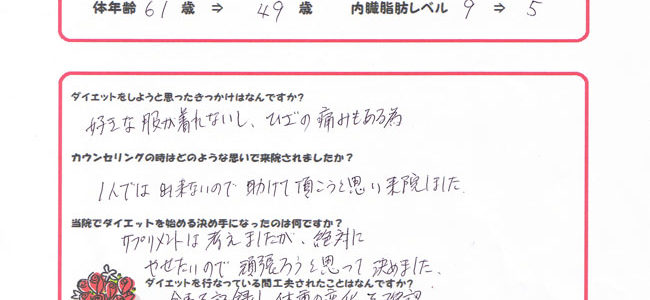 体年齢 61 歳 ⇒ 49 歳 内臓脂肪レベル 9 ⇒ 5
ダイエットをしようと思ったきっかけはなんですか?
好きな服が着れないし、ヒザの痛みもある為
カウンセリングの時はどのような思いで来院されましたか?
1人では出来ないので助けて頂こうと思い来院しました.
当院でダイエットを始める決め手になったのは何ですか?
サプリメントは考えましたが、絶対に
やせたいので頑張ろうと思って決めました.
ダイエットを行なっている間工夫されたことはなんですか?